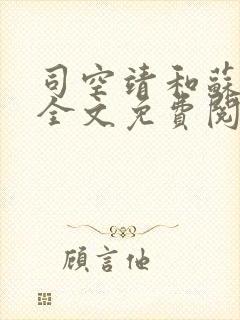 司空靖和蘇
全文免費閱
顧言他